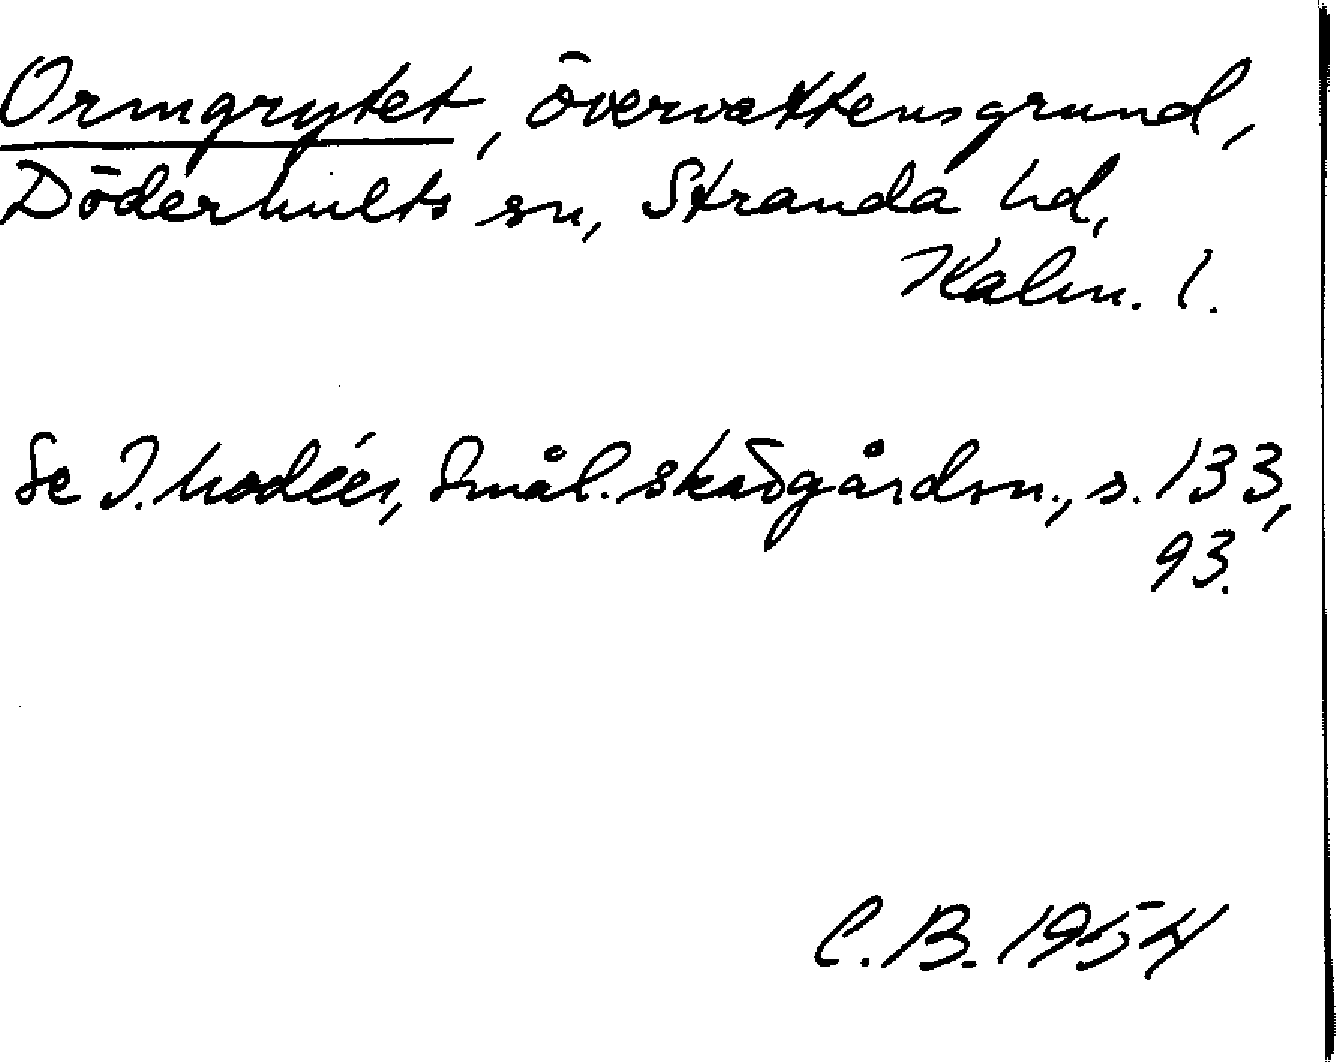 Ormgrytet, övervattensgrund,
Döderhults sn, Stranda hd,
Kalm. l.
Se I. Modéer, Smål. skärgårdsn., s. 133,
93.
C.B. 1954